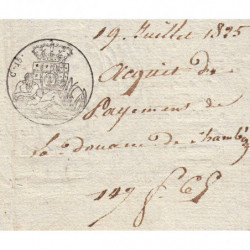 19 Juillet 1835
acquit de
Payement de
la douane de chambéry
149 f. 65